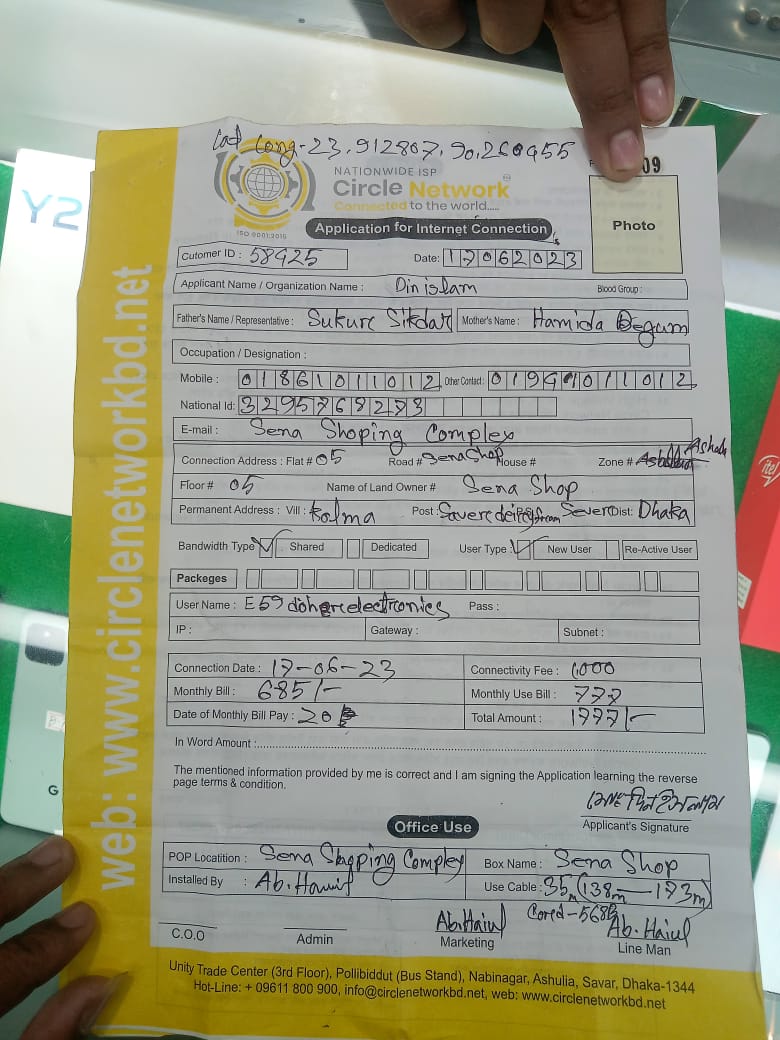 Lad Long-23.912807,90.260455
NATIONWIDE ISP
Circle Network
Connected to the world.....
ISO 9001:2015
09
Photo
Application for Internet Connection
Cutomer ID : 58925
Date: 17062023
Applicant Name / Organization Name : Din islam Blood Group :
Father's Name / Representative : Sukur Sikdar Mother's Name : Hamida Begum
Occupation / Designation :
Mobile : 01861011012 Other Contact : 01991011012
National Id: 3295768273
E-mail : Sena Shoping Complex
Connection Address : Flat # 05 Road # Sena Shop House # Zone #
Floor # 05 Name of Land Owner # Sena Shop
Permanent Address : Vill : Kolma Post : Dist: Dhaka
Bandwidth Type Shared Dedicated User Type : New User Re-Active User
Packeges
User Name : Pass :
IP : Gateway : Subnet :
Connection Date : 17-06-23 Connectivity Fee : 1,000
Monthly Bill : 685/- Monthly Use Bill : 777
Date of Monthly Bill Pay : 20 Total Amount : 1777/-
In Word Amount :
The mentioned information provided by me is correct and I am signing the Application learning the reverse
page terms & condition.
মোঃ দিন ইসলাম
Applicant's Signature
Office Use
POP Locatition : Sena Shopping Complex Box Name : Sena Shop
Installed By : Ab. Use Cable : 35m (138m-173m)
C.O.O Admin Marketing Line Man
Unity Trade Center (3rd Floor), Pollibiddut (Bus Stand), Nabinagar, Ashulia, Savar, Dhaka-1344
Hot-Line: + 09611 800 900, info@circlenetworkbd.net, web: www.circlenetworkbd.net
web: www.circlenetworkbd.net
Y2
itel
G